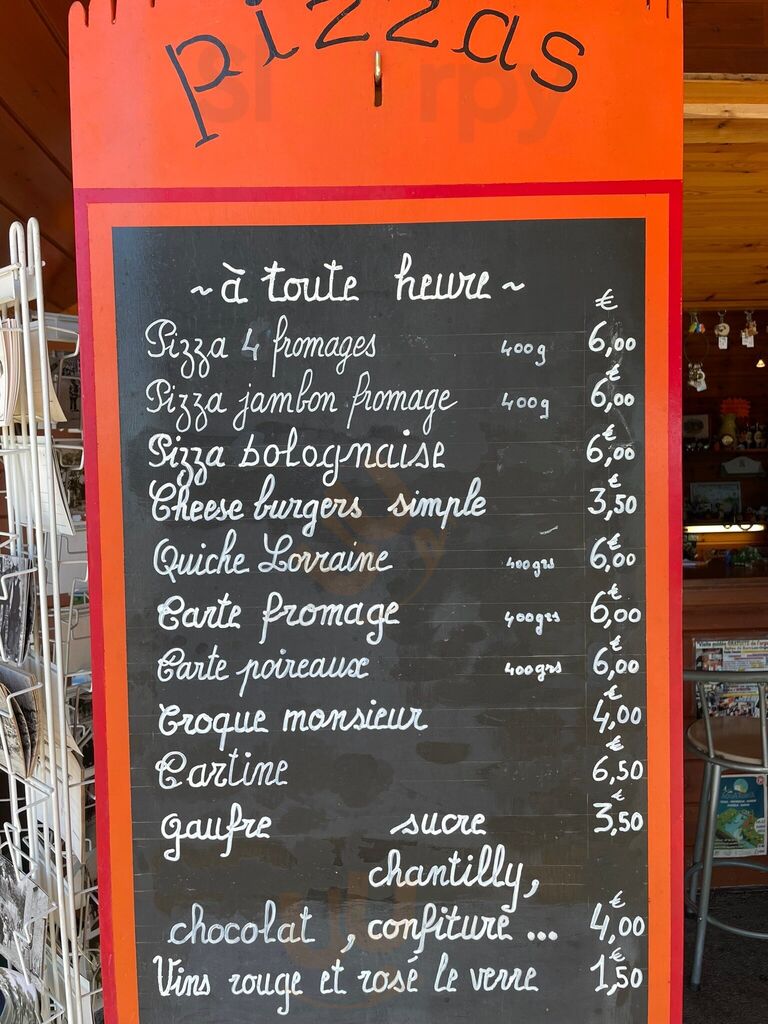 pizzas
~ à toute heure ~
€
Pizza 4 fromages 400g 6,00
Pizza jambon fromage 400g 6,00 €
Pizza bolognaise 6,00 €
Cheese burgers simple 3,50 €
Quiche Lorraine 400grs 6,00 €
Tarte fromage 400grs 6,00 €
Tarte poireaux 400grs 6,00 €
Croque monsieur 4,00 €
Tartine 6,50 €
gaufre sucre 3,50 €
chantilly,
chocolat, confiture ... 4,00 €
Vins rouge et rosé le verre 1,50 €